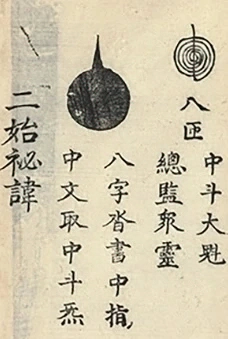 八匝
中斗大魁
總監衆靈
八字沓書中指
中文取中斗炁
二始祕諱